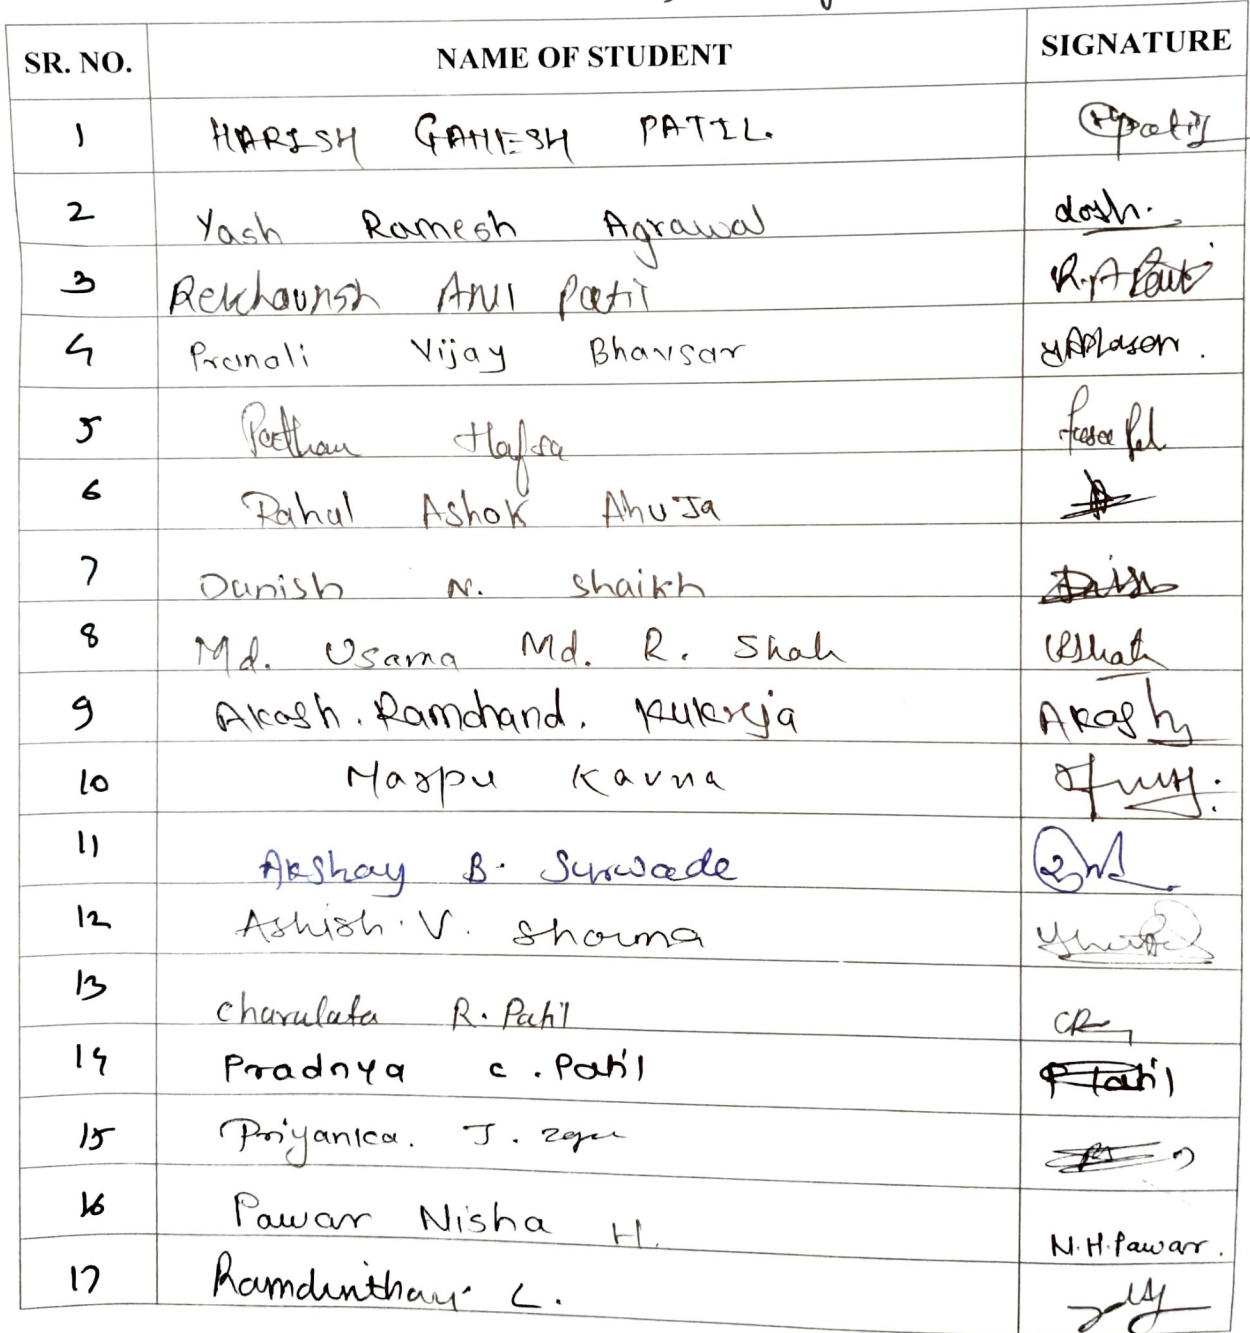 SR. NO. NAME OF STUDENT SIGNATURE
1 HARISH GANESH PATIL. Patil
2 Yash Ramesh Agrawal
3 Anil Patil R.A Patil
4 Pranali Vijay Bhavsar
5 Pathan Hafsa
6 Rahul Ashok Ahuja
7 Danish N. Shaikh Danish
8 Md. Usama Md. R. Shah UShah
9 Akash. Ramchand. Kukreja Akash
10
11 Akshay B. Surwade
12 Ashish. V. Sharma
13 Charulata R. Patil CR
14 Pradnya C. Patil P Patil
15 Priyanka. J.
16 Pawar Nisha H. N.H.Pawar.
17 L.